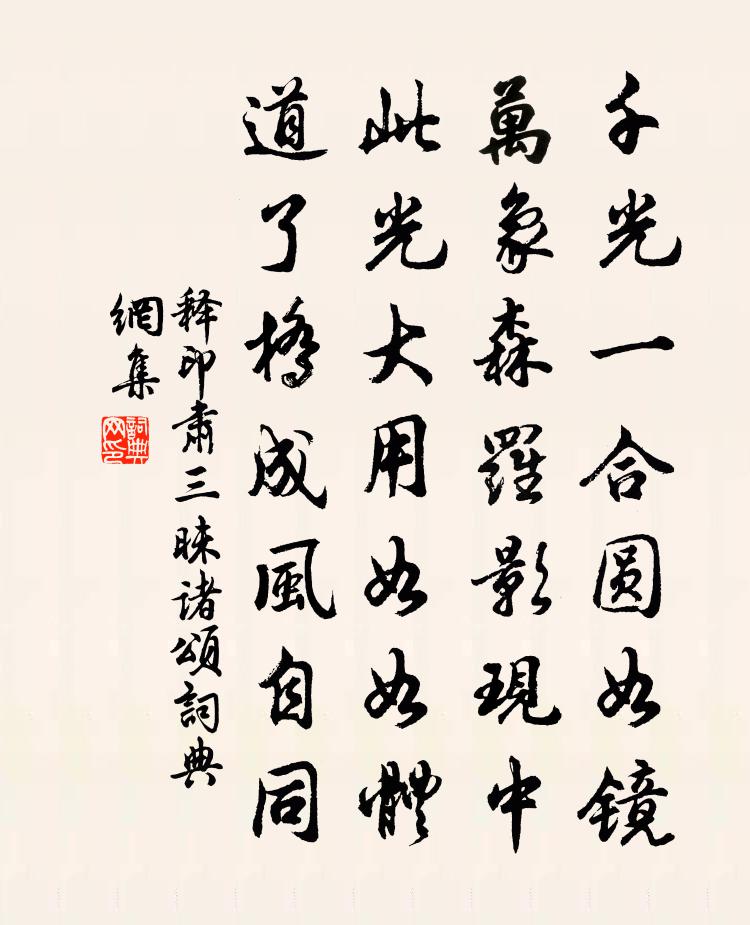 千光一合圆如镜
萬象森羅影現中
此光大用如如體
道了橋成風自同
释印肃三昧诸頌詞典
網集
詞典
网印